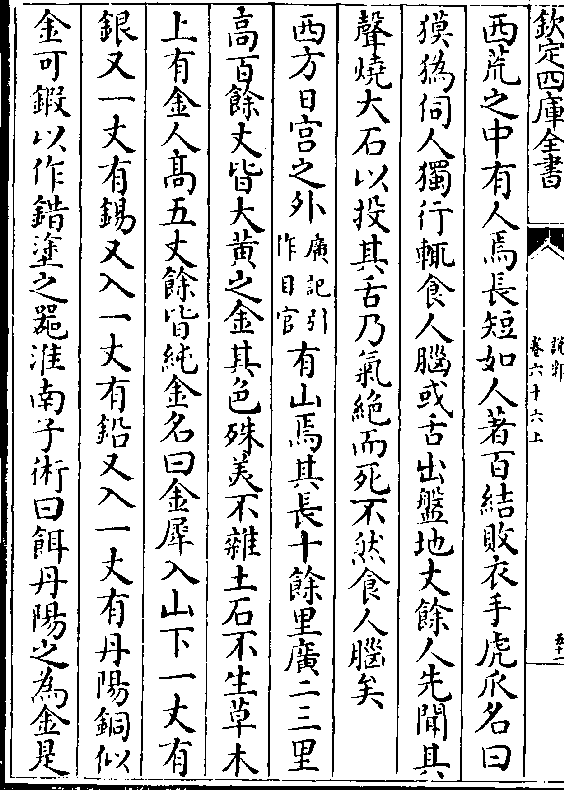 欽定四庫全書
說郛
卷六十六上
西荒之中有人焉長短如人著百結敗衣手虎爪名曰
獏㺔伺人獨行輙食人腦或舌出盤地丈餘人先聞其
聲燒大石以投其舌乃氣絶而死不然食人腦矣
西方日宫之外廣記引作目官有山焉其長十餘里廣二三里
高百餘丈皆大黄之金其色殊美不雜土石不生草木
上有金人髙五丈餘皆純金名曰金犀入山下一丈有
銀又一丈有錫又入一丈有鉛又入一丈有丹陽銅似
金可鍜以作錯塗之噐淮南子術曰餌丹陽之為金是